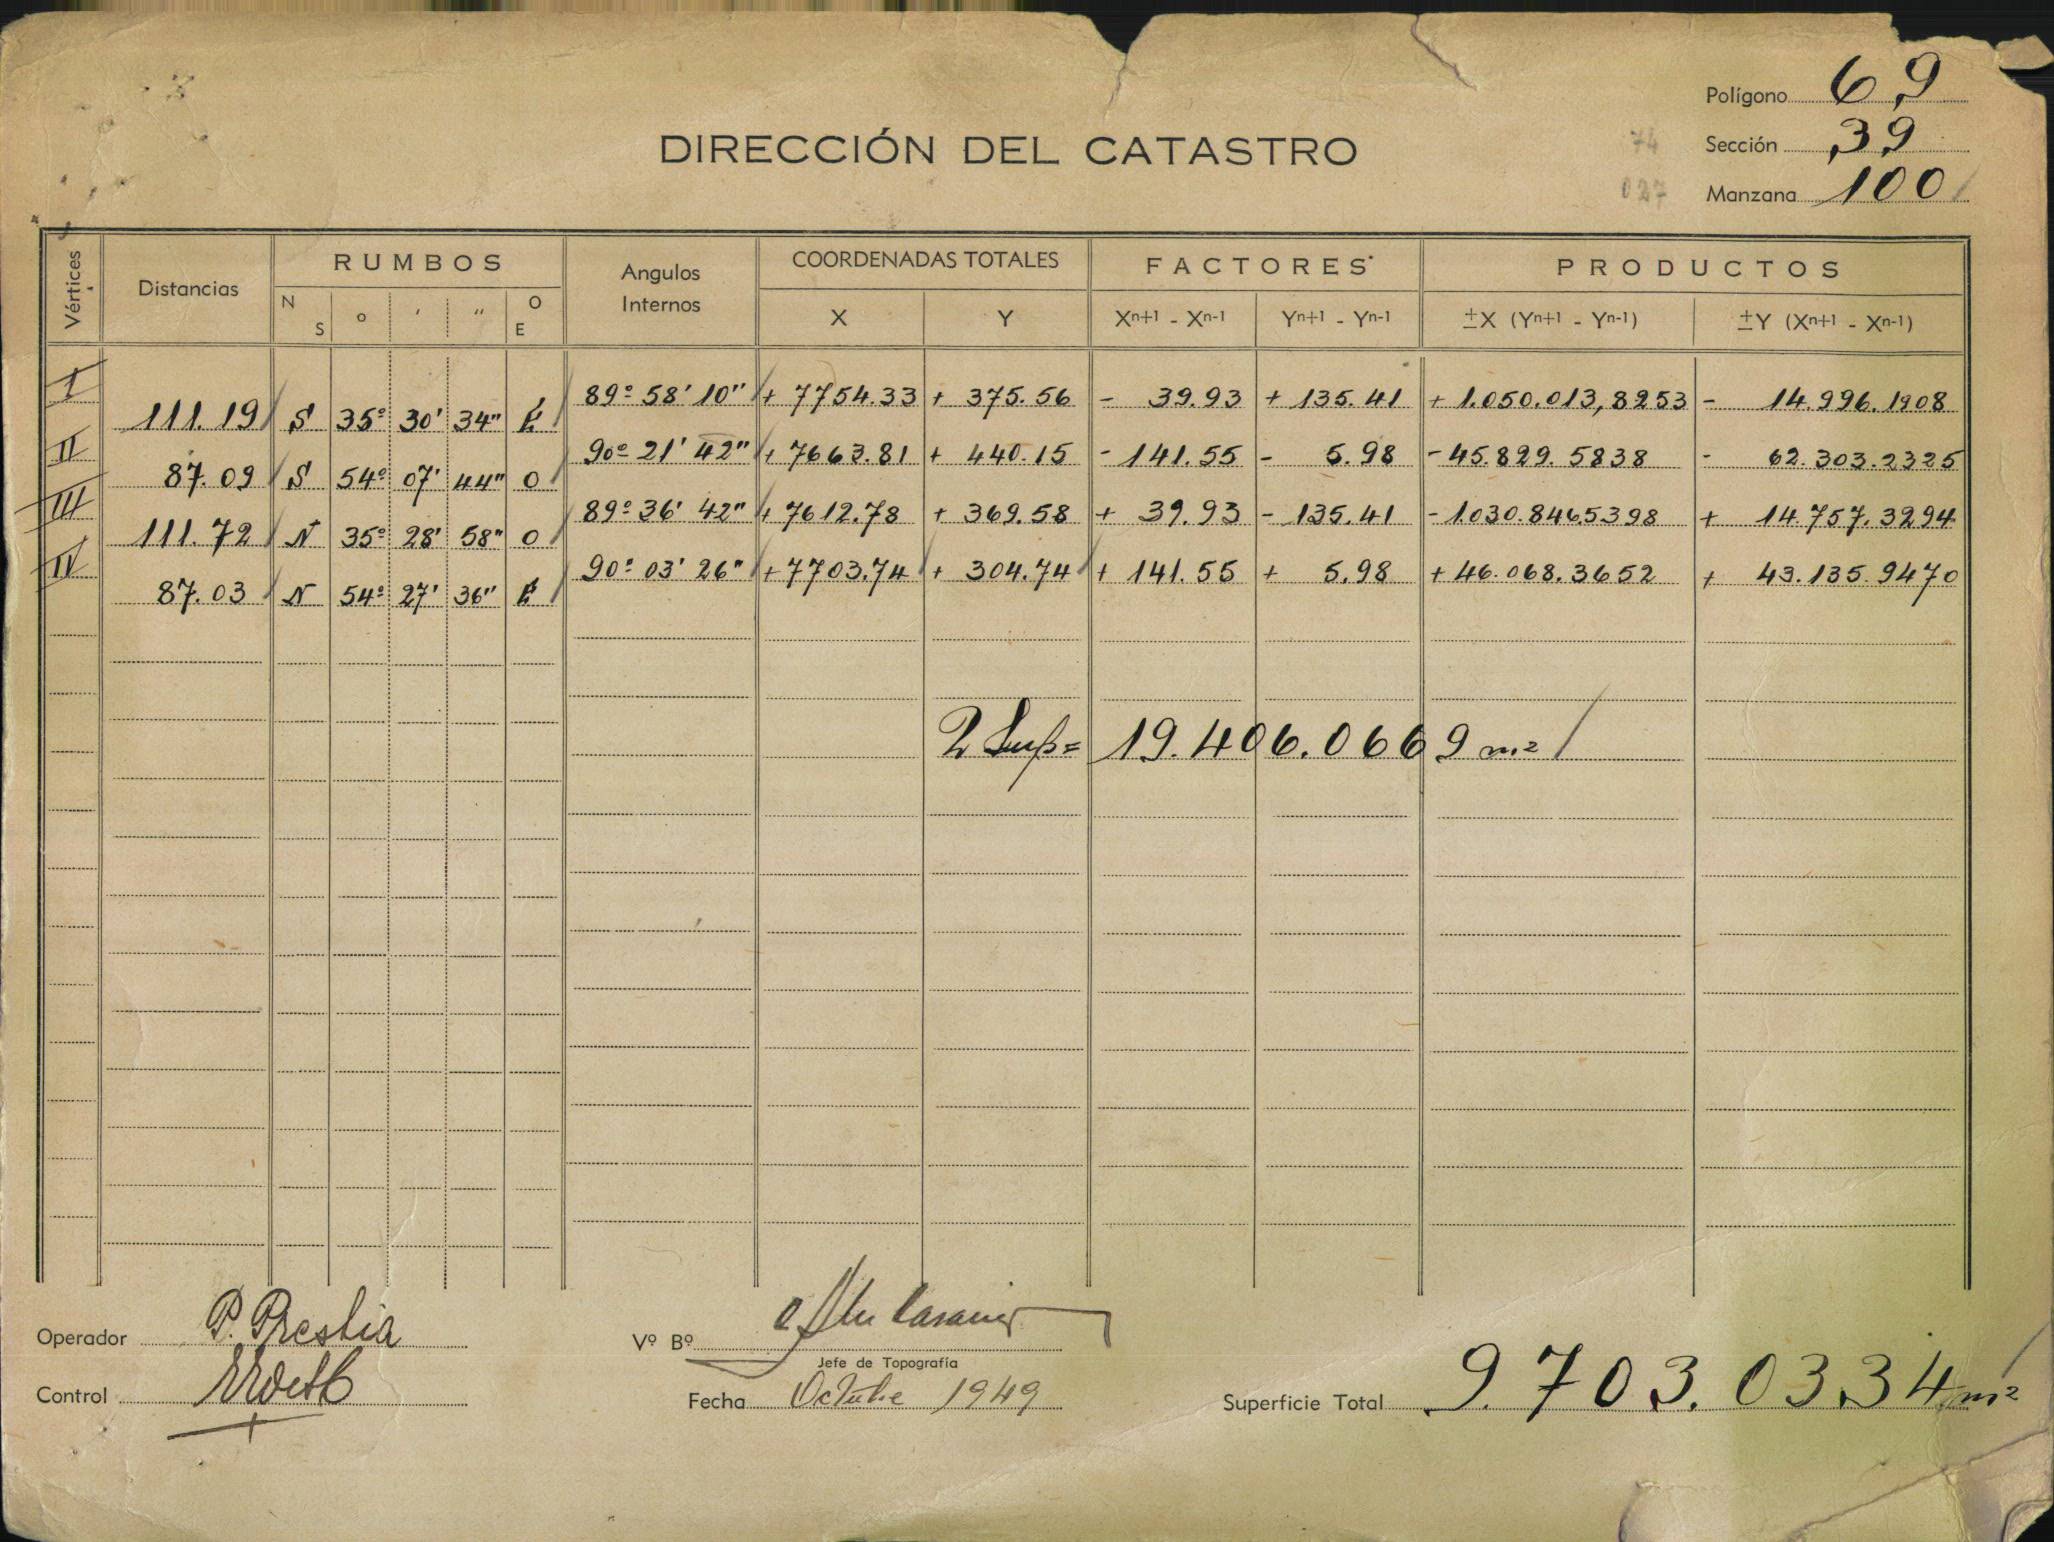 Polígono 69
DIRECCIÓN DEL CATASTRO 74 Sección 39
027 Manzana 100
Vértices Distancias RUMBOS Angulos Internos COORDENADAS TOTALES FACTORES PRODUCTOS
N S o ' " O E X Y Xn+1 - Xn-1 Yn+1 - Yn-1 ±X (Yn+1 - Yn-1) ±Y (Xn+1 - Xn-1)
I 89º 58' 10" + 7754.33 + 375.56 - 39.93 + 135.41 + 1.050.013,8253 - 14.996.1908
111.19 S 35º 30' 34" E
II 90º 21' 42" + 7663.81 + 440.15 - 141.55 - 5.98 - 45.829.5838 - 62.303.2325
87.09 S 54º 07' 44" O
III 89º 36' 42" + 7612.78 + 369.58 + 39.93 - 135.41 - 1.030.846.5398 + 14.757.3294
111.72 N 35º 28' 58" O
IV 90º 03' 26" + 7703.74 + 304.74 + 141.55 + 5.98 + 46.068.3652 + 43.135.9470
87.03 N 54º 27' 36" E
2 Sup = 19.406.0669 m2
Operador P. Presbia Vº Bº
Jefe de Topografía
Control Fecha Octubre 1949 Superficie Total 9.703.0334 m2